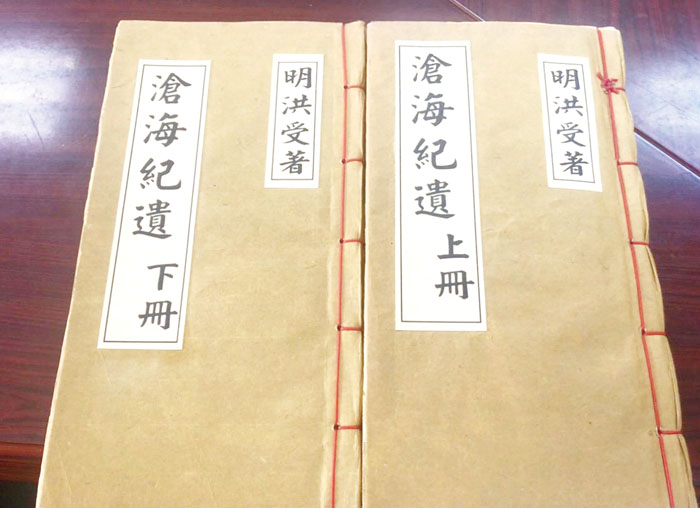 明洪受著
滄海紀遺 上冊
明洪受著
滄海紀遺 下冊